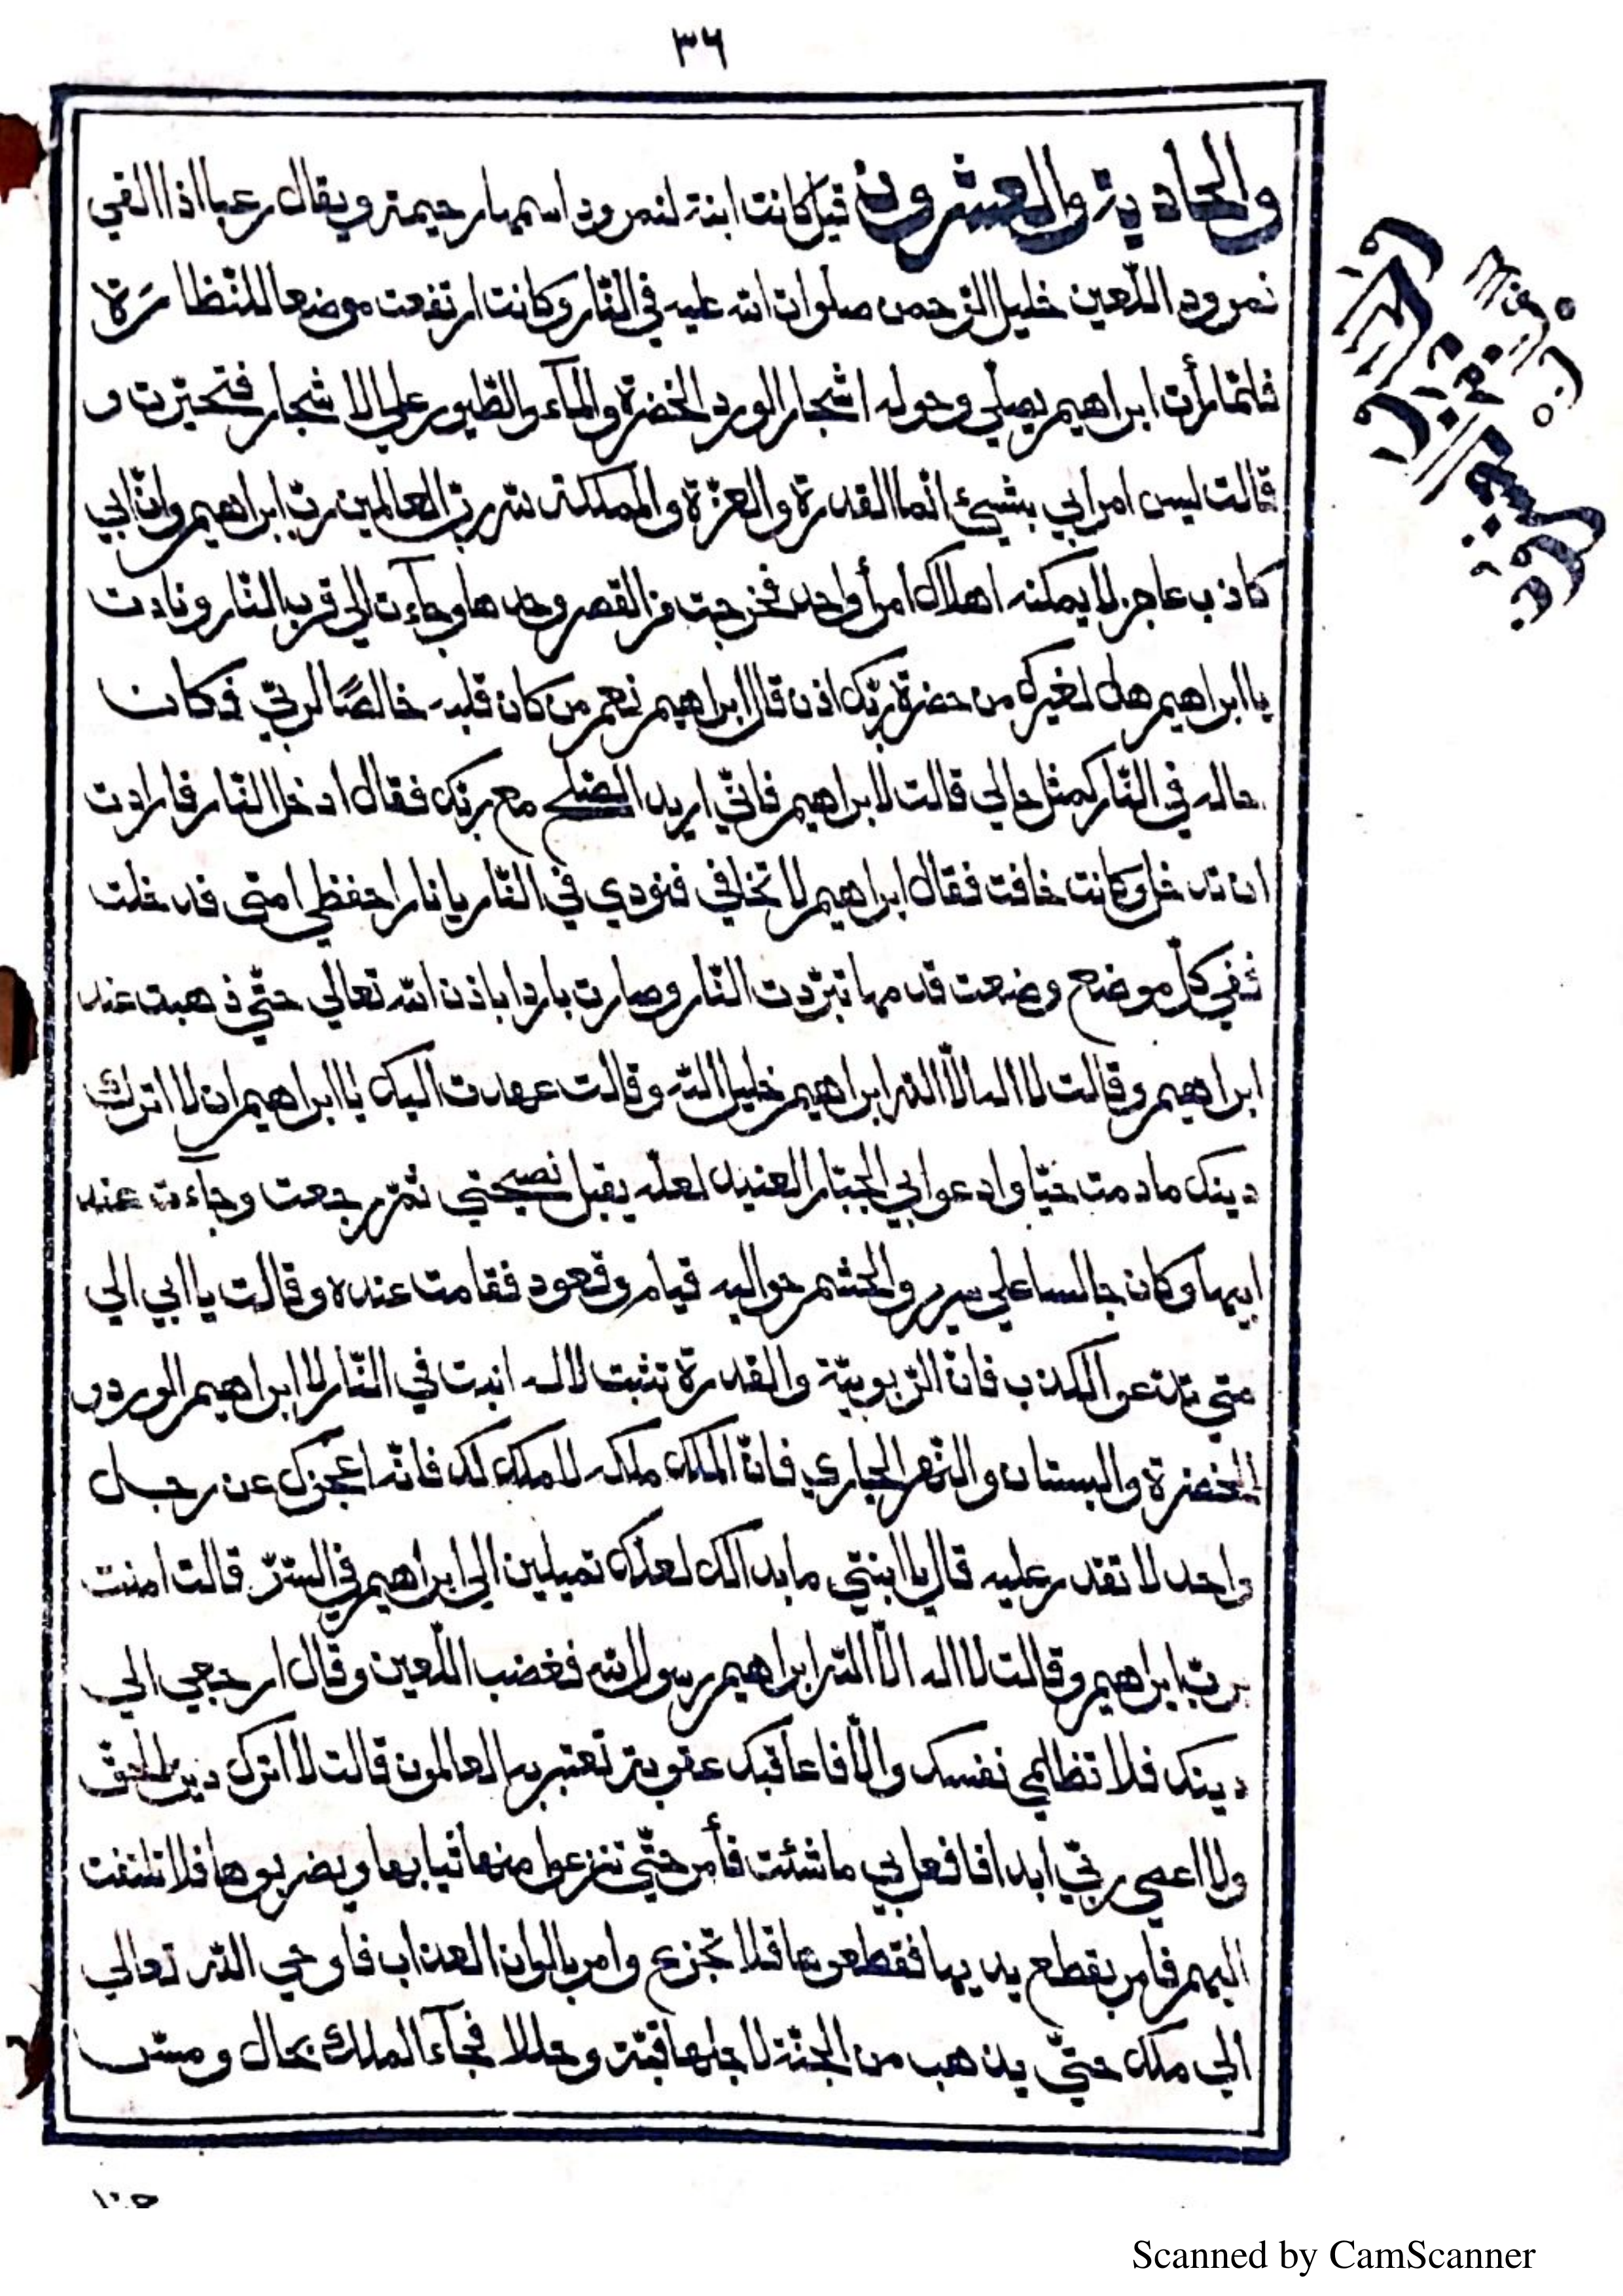 ٣٦
والحادية والعشرون قيل كانت ابنة لنمرود اسمها رحيمة ويقال رعبا اذا القي
نمرود اللّعين خليل الرّحمن صلوات الله عليه في النّار وكانت ارتفعت موضعا للنّظارَة
فلمّا رأت ابراهيم يصلّي وحوله اشجار الورد الخضرة والمآء والطّيور علي الاشجار فتحيّرت و
قالت ليس امر ابي بشيئ انّما القدرة والعزّة والمملكة لله ربّ العالمين ربّ ابراهيم وانّ ابي
كاذب عاجز لا يمكنه اهلاك امرأ واحد فخرجت من القصر وحدها وجآءت الي قرب النّار ونادت
يا ابراهيم هل لغيرك من حضرة ربّك اذن قال ابراهيم نعم من كان قلبه خالصًا لربّي فكان
حاله في النّار كمثل حالي قالت لابراهيم فانّي اريد الصّلح مع ربّك فقال ادخل النّار فارادت
ان تدخل وكانت خافت فقال ابراهيم لا تخافي فنودي في النّار يا نار احفظي امتي فدخلت
ففي كلّ موضع وضعت قدمها تبرّدت النّار وصارت باردا باذن الله تعالي حتّي ذهبت عند
ابراهيم وقالت لا اله الّا الله ابراهيم خليل الله وقالت عهدت اليك يا ابراهيم ان لا اترك
دينك ما دمت حيّا وادعوا ابي الجبّار العنيد لعلّه يقبل نصيحتي ثمّ رجعت وجآءت عند
ابيها وكان جالسا علي سرير والحشم حواليه قيام وقعود فقامت عنده وقالت يا ابي الي
متي تدعو الكذب فانّ الرّبوبيّة والقدرة تثبت لاله انبت في النّار لابراهيم الورد و
الخضرة والبستان والنّهر الجاري فانّ الملك ملكه لا ملك لك فانّه اعجزك عن رجل
واحد لا تقدر عليه قال يا ابنتي ما بدا لك لعلّك تميلين الي ابراهيم في السّرّ قالت امنت
بربّ ابراهيم وقالت لا اله الّا الله ابراهيم رسول الله فغضب اللّعين وقال ارجعي الي
دينك فلا تظلمي نفسك والّا فاعاقبك عقوبة تعتبر به العالمون قالت لا اترك دين الحقّ
ولا اعصي ربّي ابدا فافعل بي ما شئت فأمر حتّي تنزعوا منها ثيابها ويضربوها فلا تلتفت
اليهم فامر بقطع يديها فقطعوها فلا تجزع وامر بالوان العذاب فاوحي الله تعالي
الي ملك حتّي يذهب من الجنّة لاجلها قبّة وحللا فجآء الملك بحال ومسّ